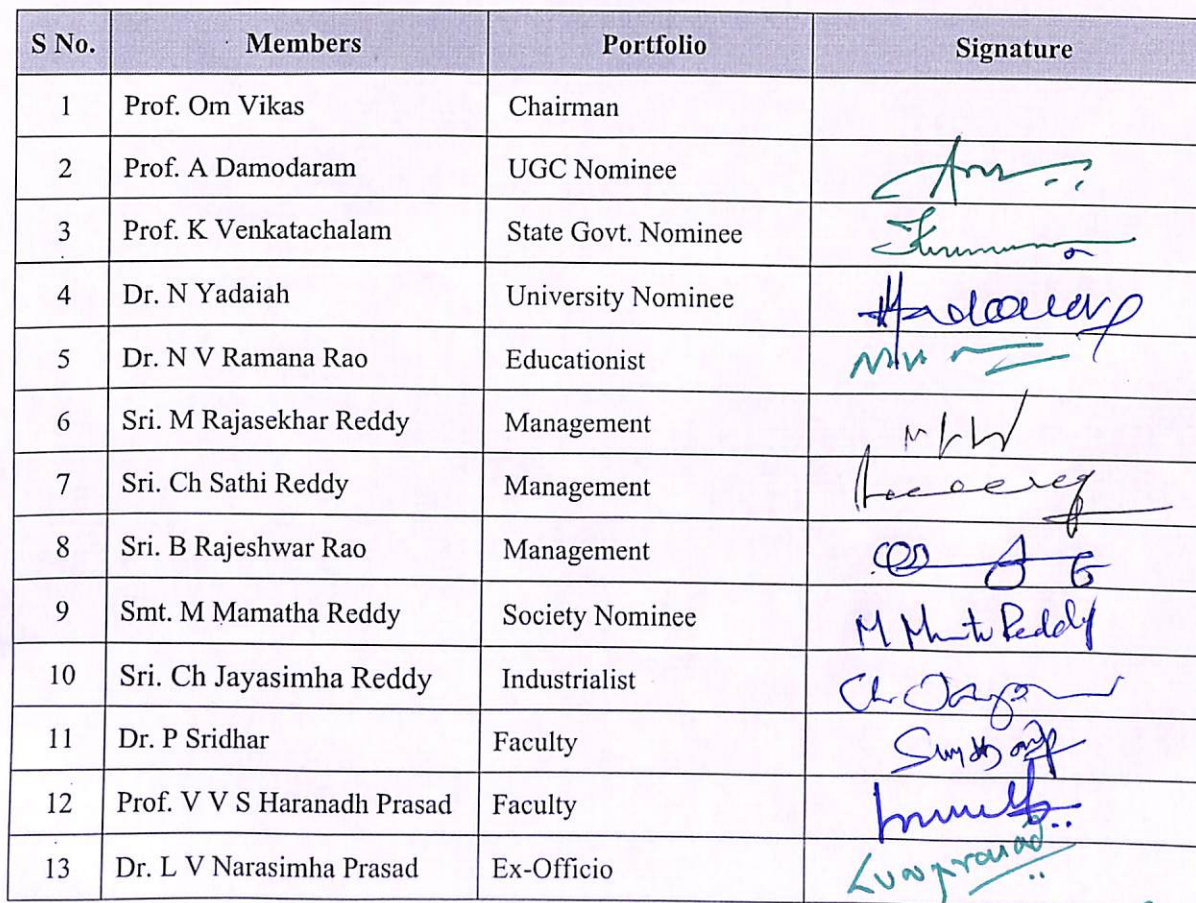 S No. Members Portfolio Signature
1 Prof. Om Vikas Chairman
2 Prof. A Damodaram UGC Nominee
3 Prof. K Venkatachalam State Govt. Nominee
4 Dr. N Yadaiah University Nominee
5 Dr. N V Ramana Rao Educationist
6 Sri. M Rajasekhar Reddy Management
7 Sri. Ch Sathi Reddy Management
8 Sri. B Rajeshwar Rao Management
9 Smt. M Mamatha Reddy Society Nominee M Reddy
10 Sri. Ch Jayasimha Reddy Industrialist Ch
11 Dr. P Sridhar Faculty
12 Prof. V V S Haranadh Prasad Faculty
13 Dr. L V Narasimha Prasad Ex-Officio